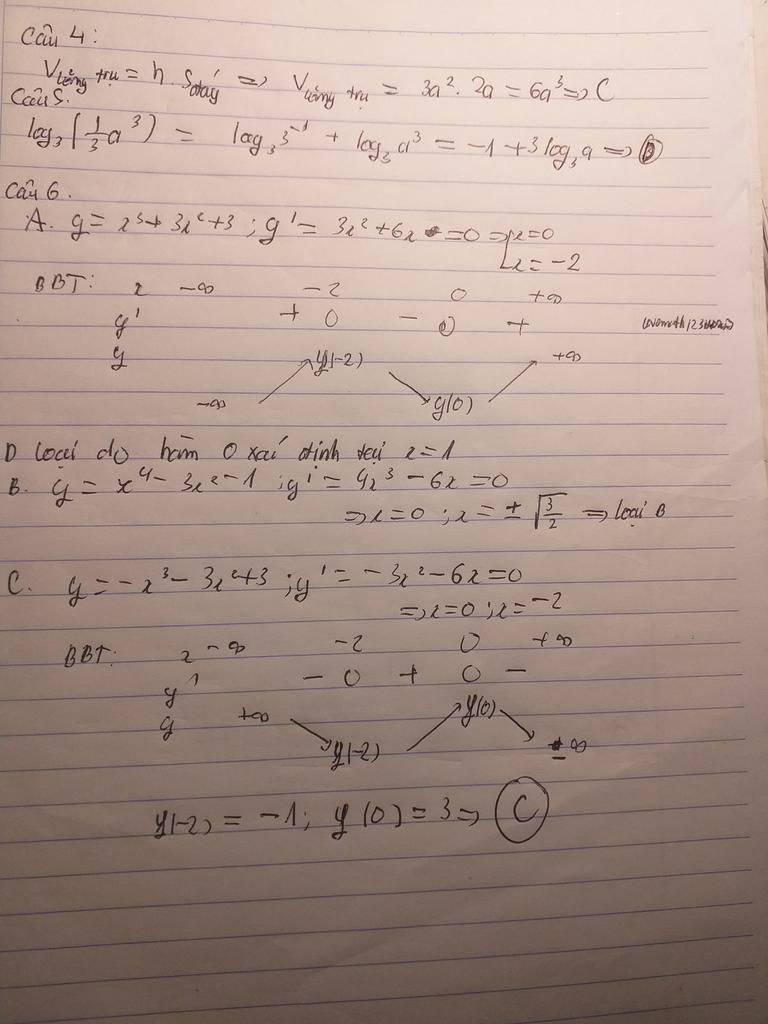 Câu 4:
V lăng trụ = h. S đáy => V lăng trụ = 3a². 2a = 6a³ => C
Câu 5.
log₃(1/3 a³) = log₃3⁻¹ + log₃a³ = -1 + 3log₃a =>
Câu 6.
A. y = x³ + 3x² + 3 ; y' = 3x² + 6x = 0 => x = 0
x = -2
BBT: x -∞ -2 0 +∞
y' + 0 - 0 +
y y(-2) +∞
-∞ y(0)
D loại do hàm 0 xác định tại x = 1
B. y = x⁴ - 3x² - 1 ; y' = 4x³ - 6x = 0
=> x = 0 ; x = ± √(3/2) => loại B
C. y = -x³ - 3x² + 3 ; y' = -3x² - 6x = 0
=> x = 0 ; x = -2
BBT: x -∞ -2 0 +∞
y' - 0 + 0 -
y +∞ y(0)
y(-2) -∞
y(-2) = -1; y(0) = 3 => C